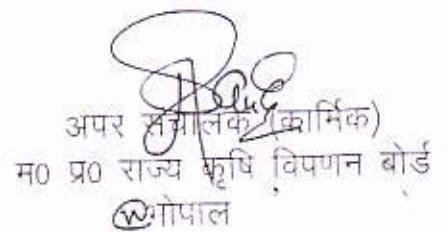 अपर संचालक (कार्मिक)
म0 प्र0 राज्य कृषि विपणन बोर्ड
गोपाल